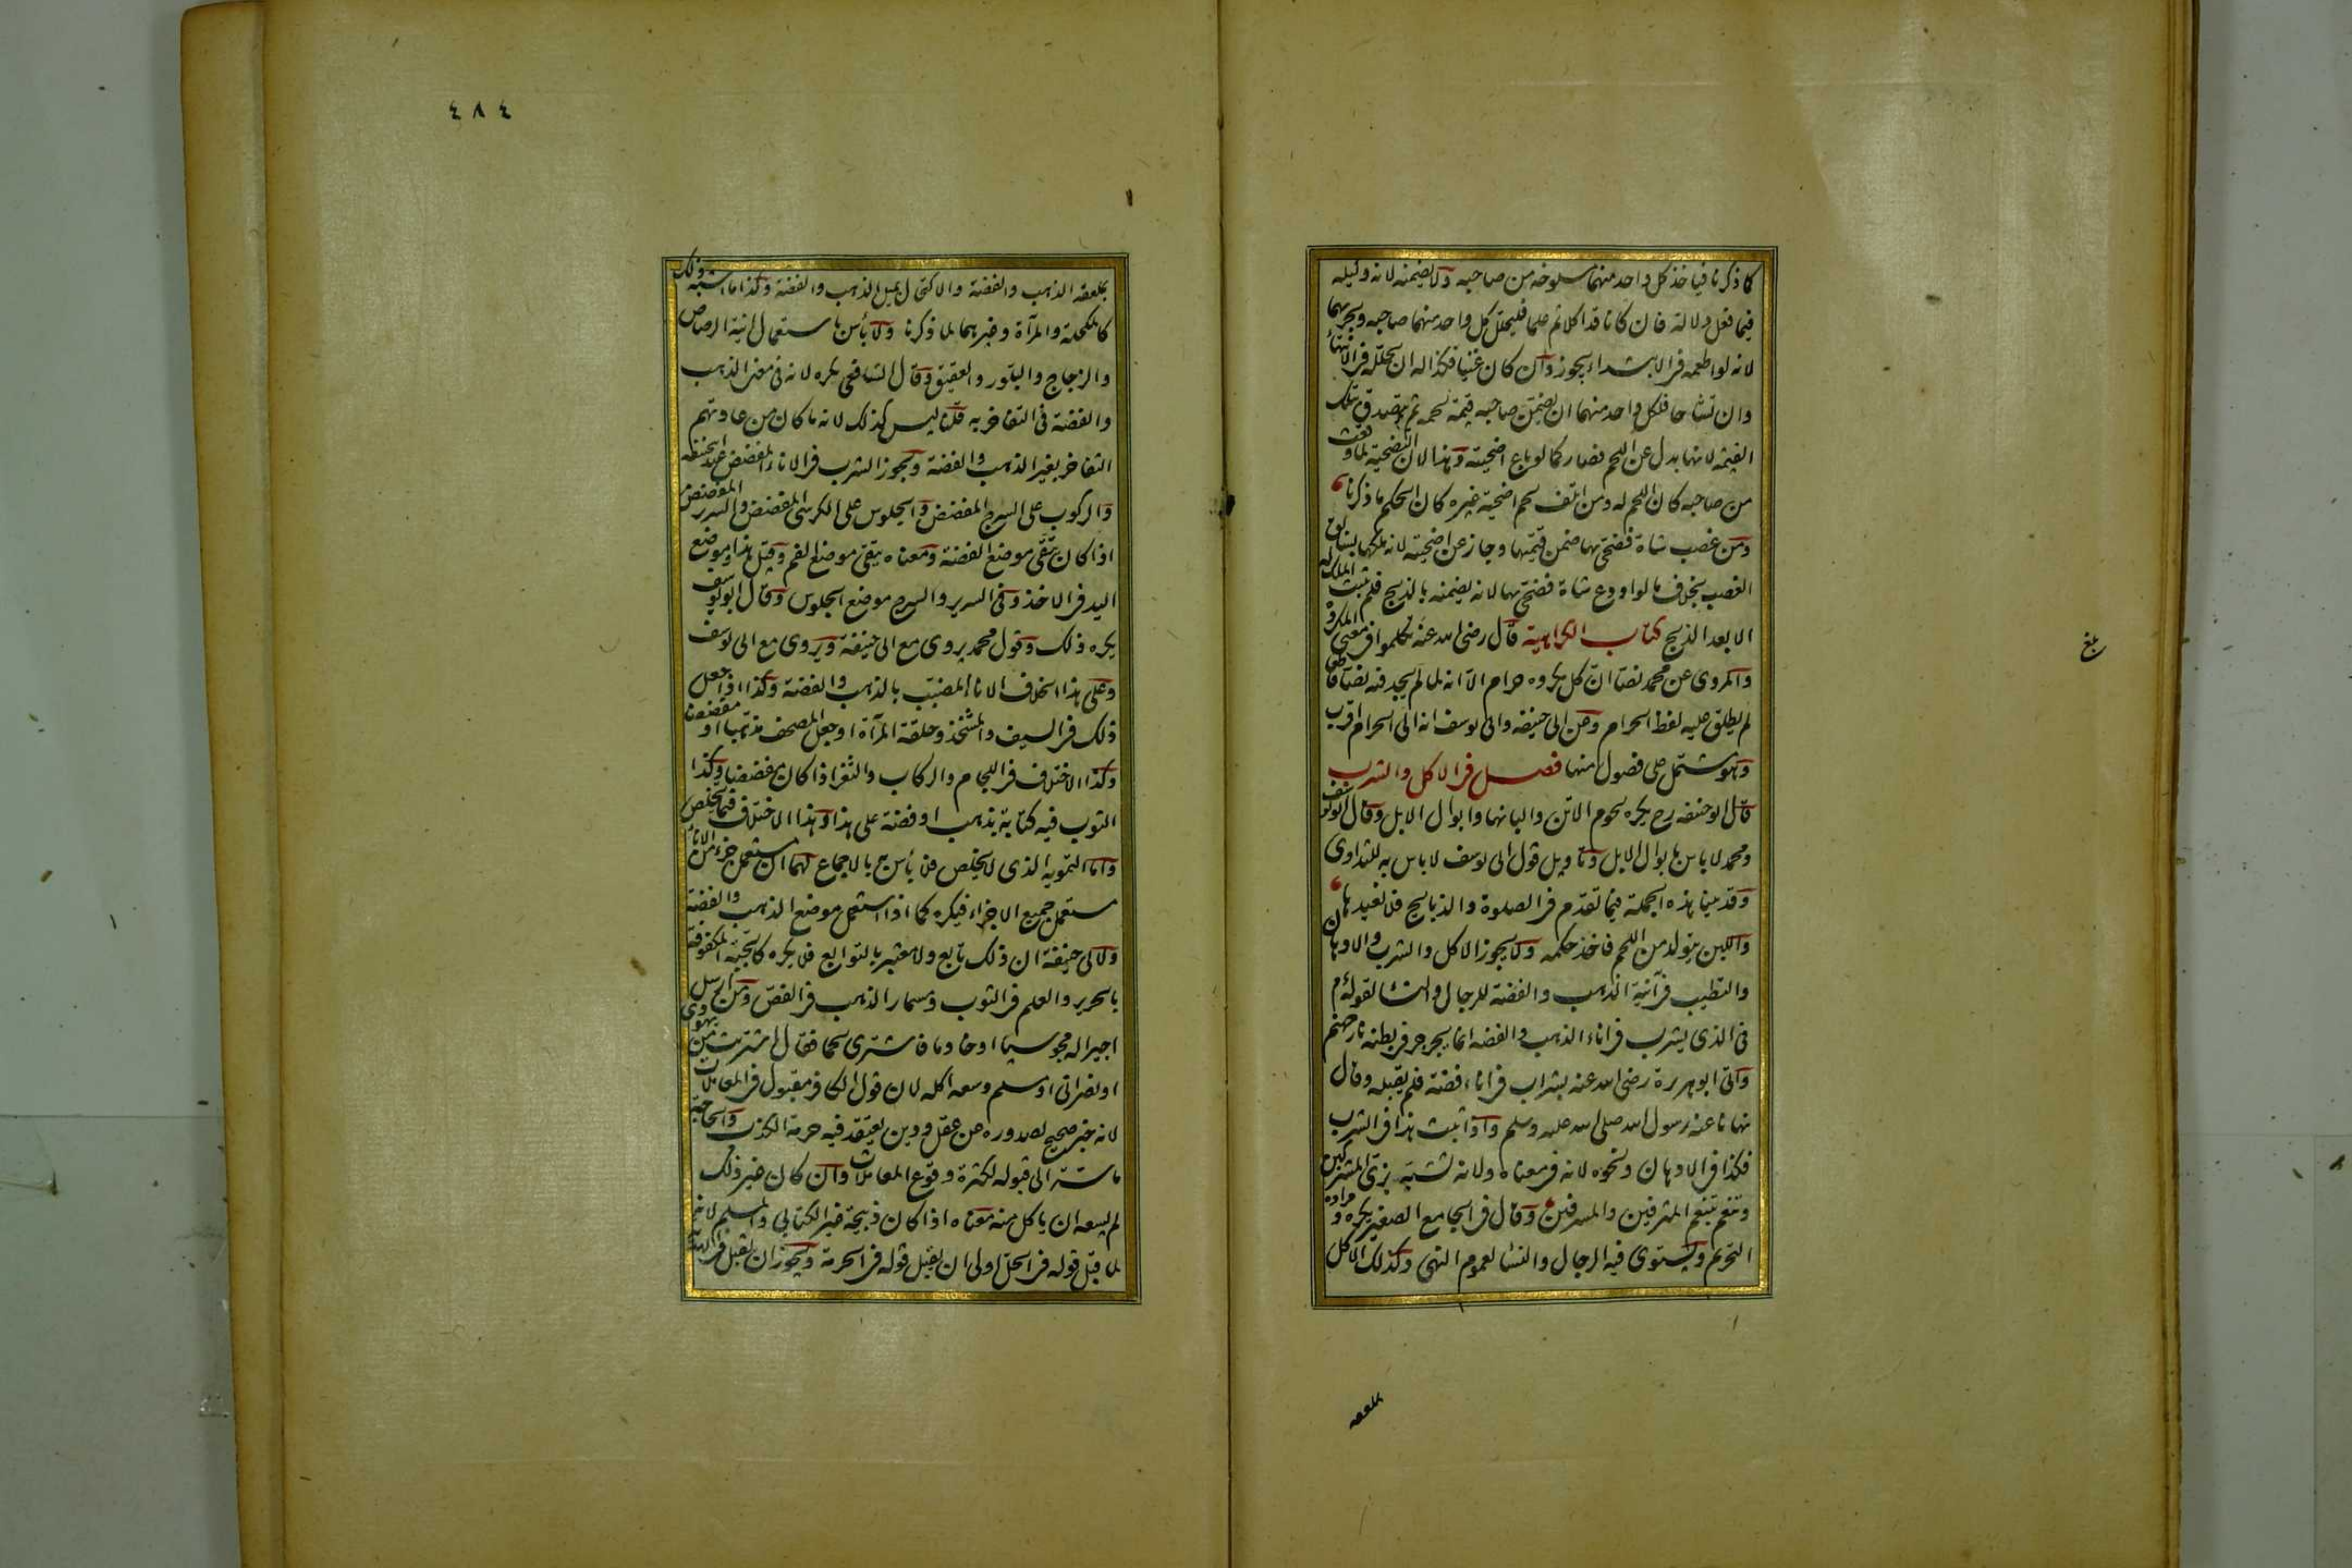 كما ذكرنا فياخذ كل واحد منهما مسلوخه من صاحبه ولا يضمنه لانه وكيله
فيما فعل دلالة فان كانا قد اكلا ثم علما فليحلل كل واحد منهما صاحبه ويجزيهما
لانه لو اطعمه فى الابتداء يجوز وان كان غنيا فكذا له ان يحلله فى الانتهاء
وان تشاحا فلكل واحد منهما ان يضمن صاحبه قيمة لحمه ثم يتصدق بتلك
القيمة لانها بدل عن اللحم فصار كما لو باع اضحيته وهذا لان التضحية لما وقعت
من صاحبه كان اللحم له ومن اتلف لحم اضحية غيره كان الحكم ما ذكرنا
ومن غصب شاة فضحى بها ضمن قيمتها وجاز عن اضحيته لانه ملكها بسابق
الغصب بخلاف ما لو اودع شاة فضحى بها لانه يضمنه بالذبح فلم يثبت الملك له
الا بعد الذبح كتاب الكراهية قال رضى الله عنه تكلموا فى معنى المكروه
والمروى عن محمد نصا ان كل مكروه حرام الا انه لما لم يجد فيه نصا قاطعا
لم يطلق عليه لفظ الحرام وعن ابى حنيفة وابى يوسف انه الى الحرام اقرب
وهو مشتمل على فصول منها فصل فى الاكل والشرب
قال ابو حنيفه رح يكره لحوم الاتن والبانها وابوال الابل وقال ابو يوسف
ومحمد لا باس بابوال الابل وتاويل قول ابى يوسف لا باس به للتداوى
وقد بينا هذه الجملة فيما تقدم فى الصلوة والذبايح فلا نعيدها
واللبن يتولد من اللحم فاخذ حكمه ولا يجوز الاكل والشرب والادهان
والتطيب فى آنية الذهب والفضة للرجال والنساء لقوله م
فى الذى يشرب فى اناء الذهب والفضه انما يجرجر فى بطنه نار جهنم
واتى ابو هريرة رضى الله عنه بشراب فى اناء فضة فلم يقبله وقال
نهانا عنه رسول الله صلى الله عليه وسلم واذا ثبت هذا فى الشرب
فكذا فى الادهان ونحوه لانه فى معناه ولانه تشبه بزى المشركين
وتنعم بتنعم المترفين والمسرفين وقال فى الجامع الصغير يكره ومراده
التحريم ويستوى فيه الرجال والنساء لعموم النهى وكذلك الاكل
بلغ
بملعقه
٤٨٤
بملعقة الذهب والفضة والاكتحال بميل الذهب والفضة وكذا ما اشبه ذلك
كالمكحلة والمرآة وغيرهما لما ذكرنا ولا بأس باستعمال آنية الرصاص
والزجاج والبلور والعقيق وقال الشافعى يكره لانه فى معنى الذهب
والفضة فى التفاخر به قلنا ليس كذلك لانه ما كان من عادتهم
التفاخر بغير الذهب والفضة ويجوز الشرب فى الاناء المفضض عند ابى حنيفه
والركوب على السرج المفضض والجلوس على الكرسى المفضض والسرير المفضض
اذا كان يتقى موضع الفضة ومعناه يتقى موضع الفم وقيل هذا وموضع
اليد فى الاخذ وفى السرير والسرج موضع الجلوس وقال ابو يوسف
يكره ذلك وقول محمد يروى مع ابى حنيفة ويروى مع ابى يوسف
وعلى هذا الخلاف الاناء المضبب بالذهب والفضة وكذا اذا جعل
ذلك فى السيف والمشحذ وحلقة المرآة او جعل المصحف مذهبا او مفضضا
وكذا الاختلاف فى اللجام والركاب والثفر اذا كان مفضضا وكذا
الثوب فيه كتابة بذهب او فضة على هذا وهذا الاختلاف فيما يخلص
واما التمويه الذى لا يخلص فلا بأس به بالاجماع لهما ان مستعمل جزء من الاناء
مستعمل جميع الاجزاء فيكره كما اذا استعمل موضع الذهب والفضة
ولابى حنيفة ان ذلك تابع ولا معتبر بالتوابع فلا يكره كالجبة المكفوفة
بالحرير والعلم فى الثوب ومسمار الذهب فى الفص ومن ارسل
اجيرا له مجوسيا او خادما فاشترى لحما فقال اشتريته من يهودى
او نصرانى او مسلم وسعه اكله لان قول الكافر مقبول فى المعاملات
لانه خبر صحيح لصدوره عن عقل ودين يعتقد فيه حرمة الكذب والحاجة
ماسة الى قبوله لكثرة وقوع المعاملات وان كان غير ذلك
لم يسعه ان ياكل منه معناه اذا كان ذبيحة غير الكتابى والمسلم لانه
لما قبل قوله فى الحل اولى ان يقبل قوله فى الحرمة ويجوز ان يقبل فى الهدية